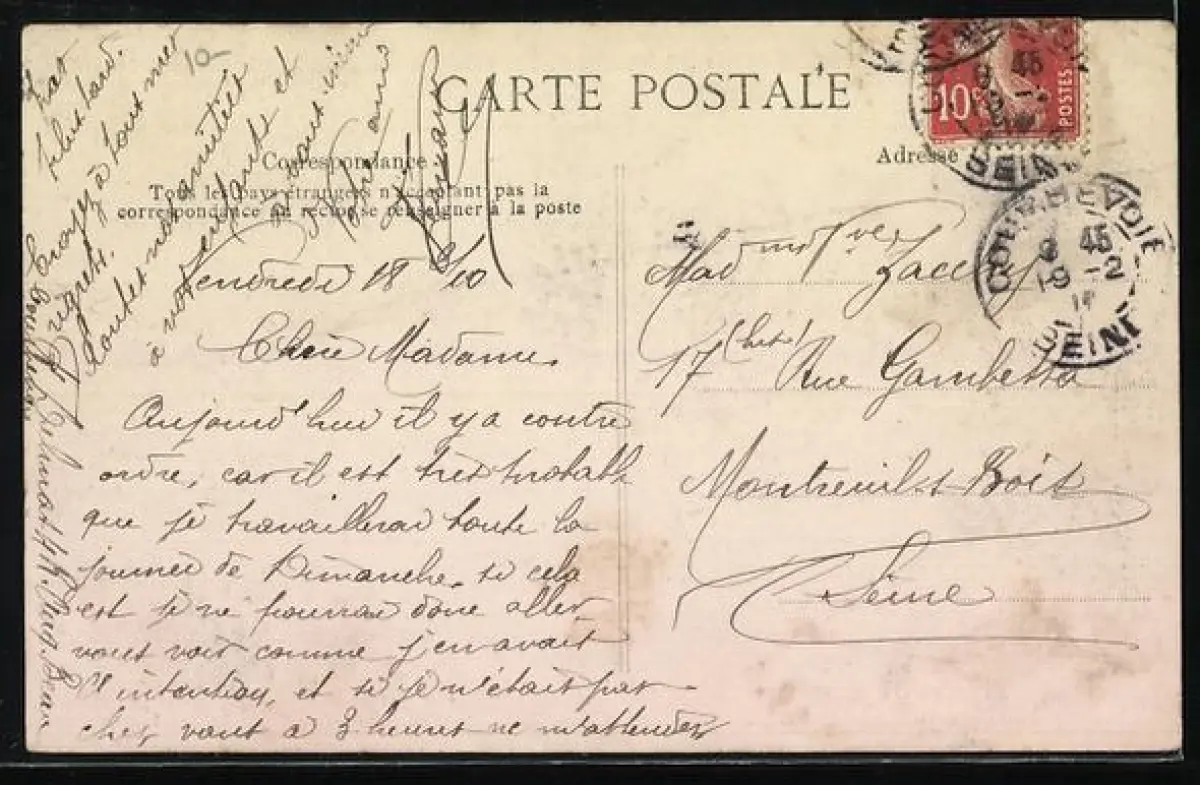 CARTE POSTALE
Correspondance
Tous les pays étrangers n'acceptant pas la
correspondance au recto se renseigner à la poste
Adresse
10c
POSTES
COURBEVOIE
9 45
19 -2
SEINE
Vendredi 18 10
Chère Madame
Aujourd'hui il y a contre
ordre, car il est très probable
que je travaillerai toute la
journée de Dimanche. si cela
est je ne pourrai donc aller
vous voir comme j'en avait
l'intention, et si je n'était pas
chez vous à 3 heures ne m'attendez
pas
plus tard.
Croyez à tous mes
regrets.
toutes nos amitiés
à vos enfants et
à vous
10
Madme Vve
17 (bis) Rue Gambetta
Montreuil s Bois
Seine